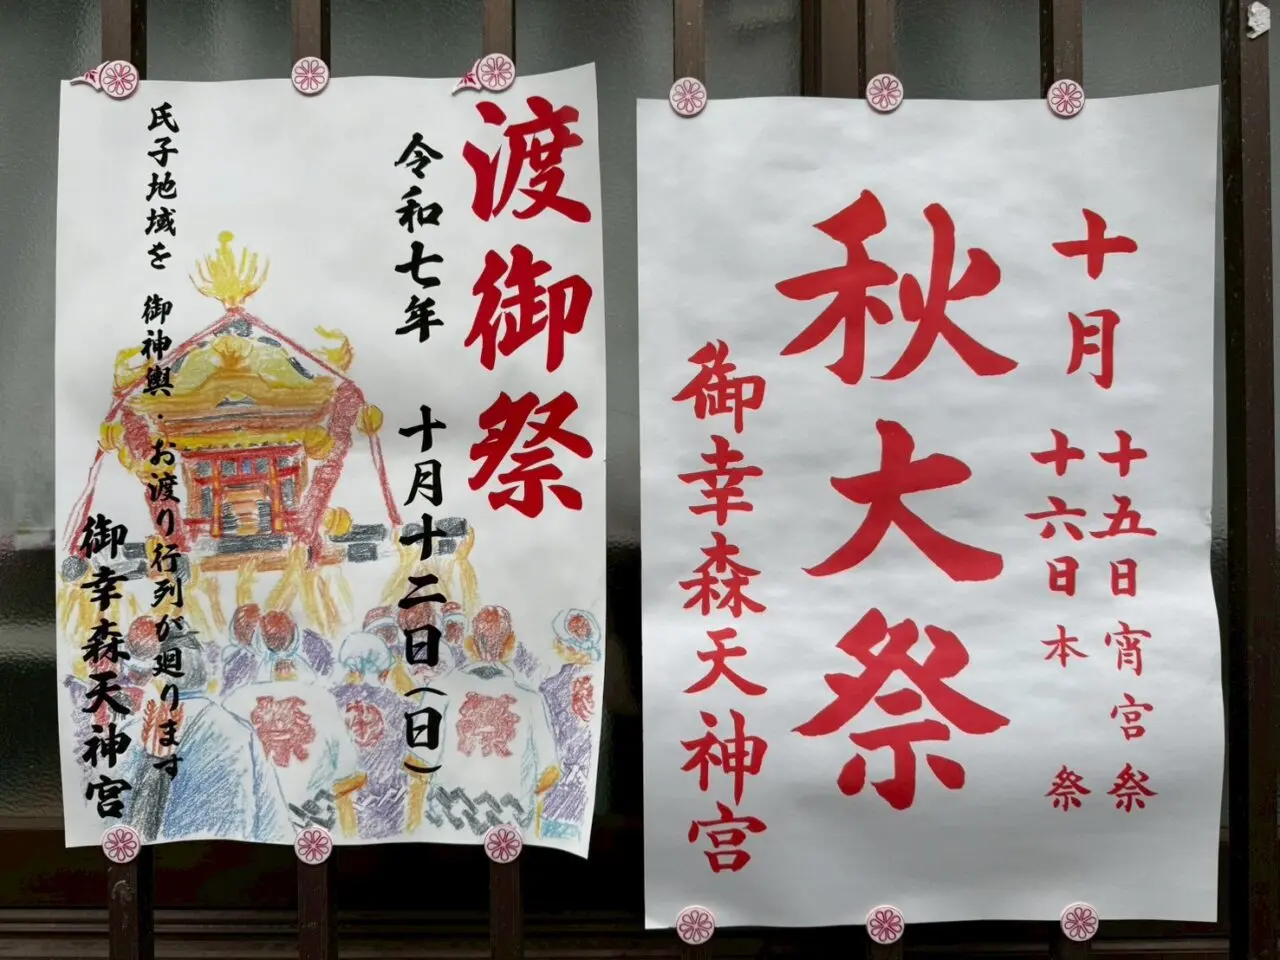 渡御祭
令和七年 十月十二日(日)
氏子地域を 御神輿・お渡り行列が廻ります
御幸森天神宮
十月
十五日 宵宮祭
十六日 本祭
秋大祭
御幸森天神宮
祭
祭